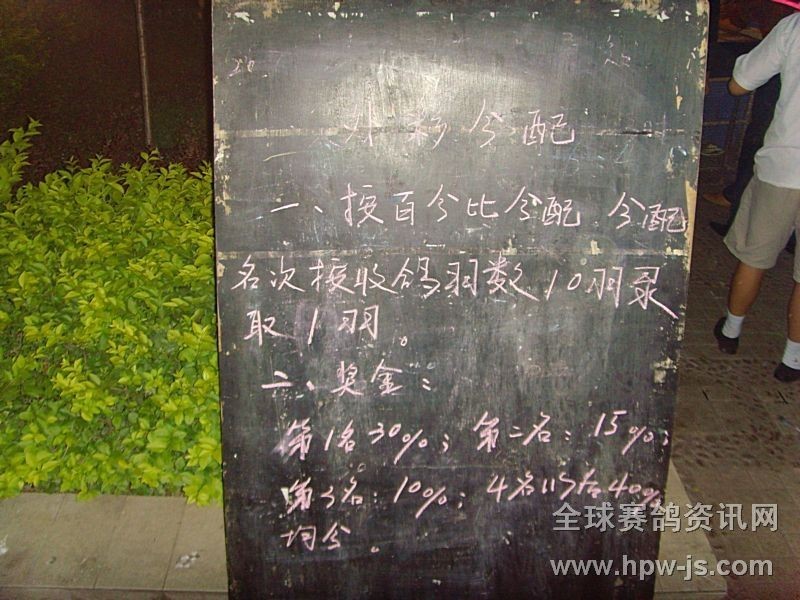 外彩分配
一、按百分比分配 分配
名次按收鸽羽数10羽录
取1羽。
二、奖金：
第1名30%；第二名：15%；
第3名：10%；4名以后40%
均分。
全球赛鸽资讯网
www.hpw-js.com